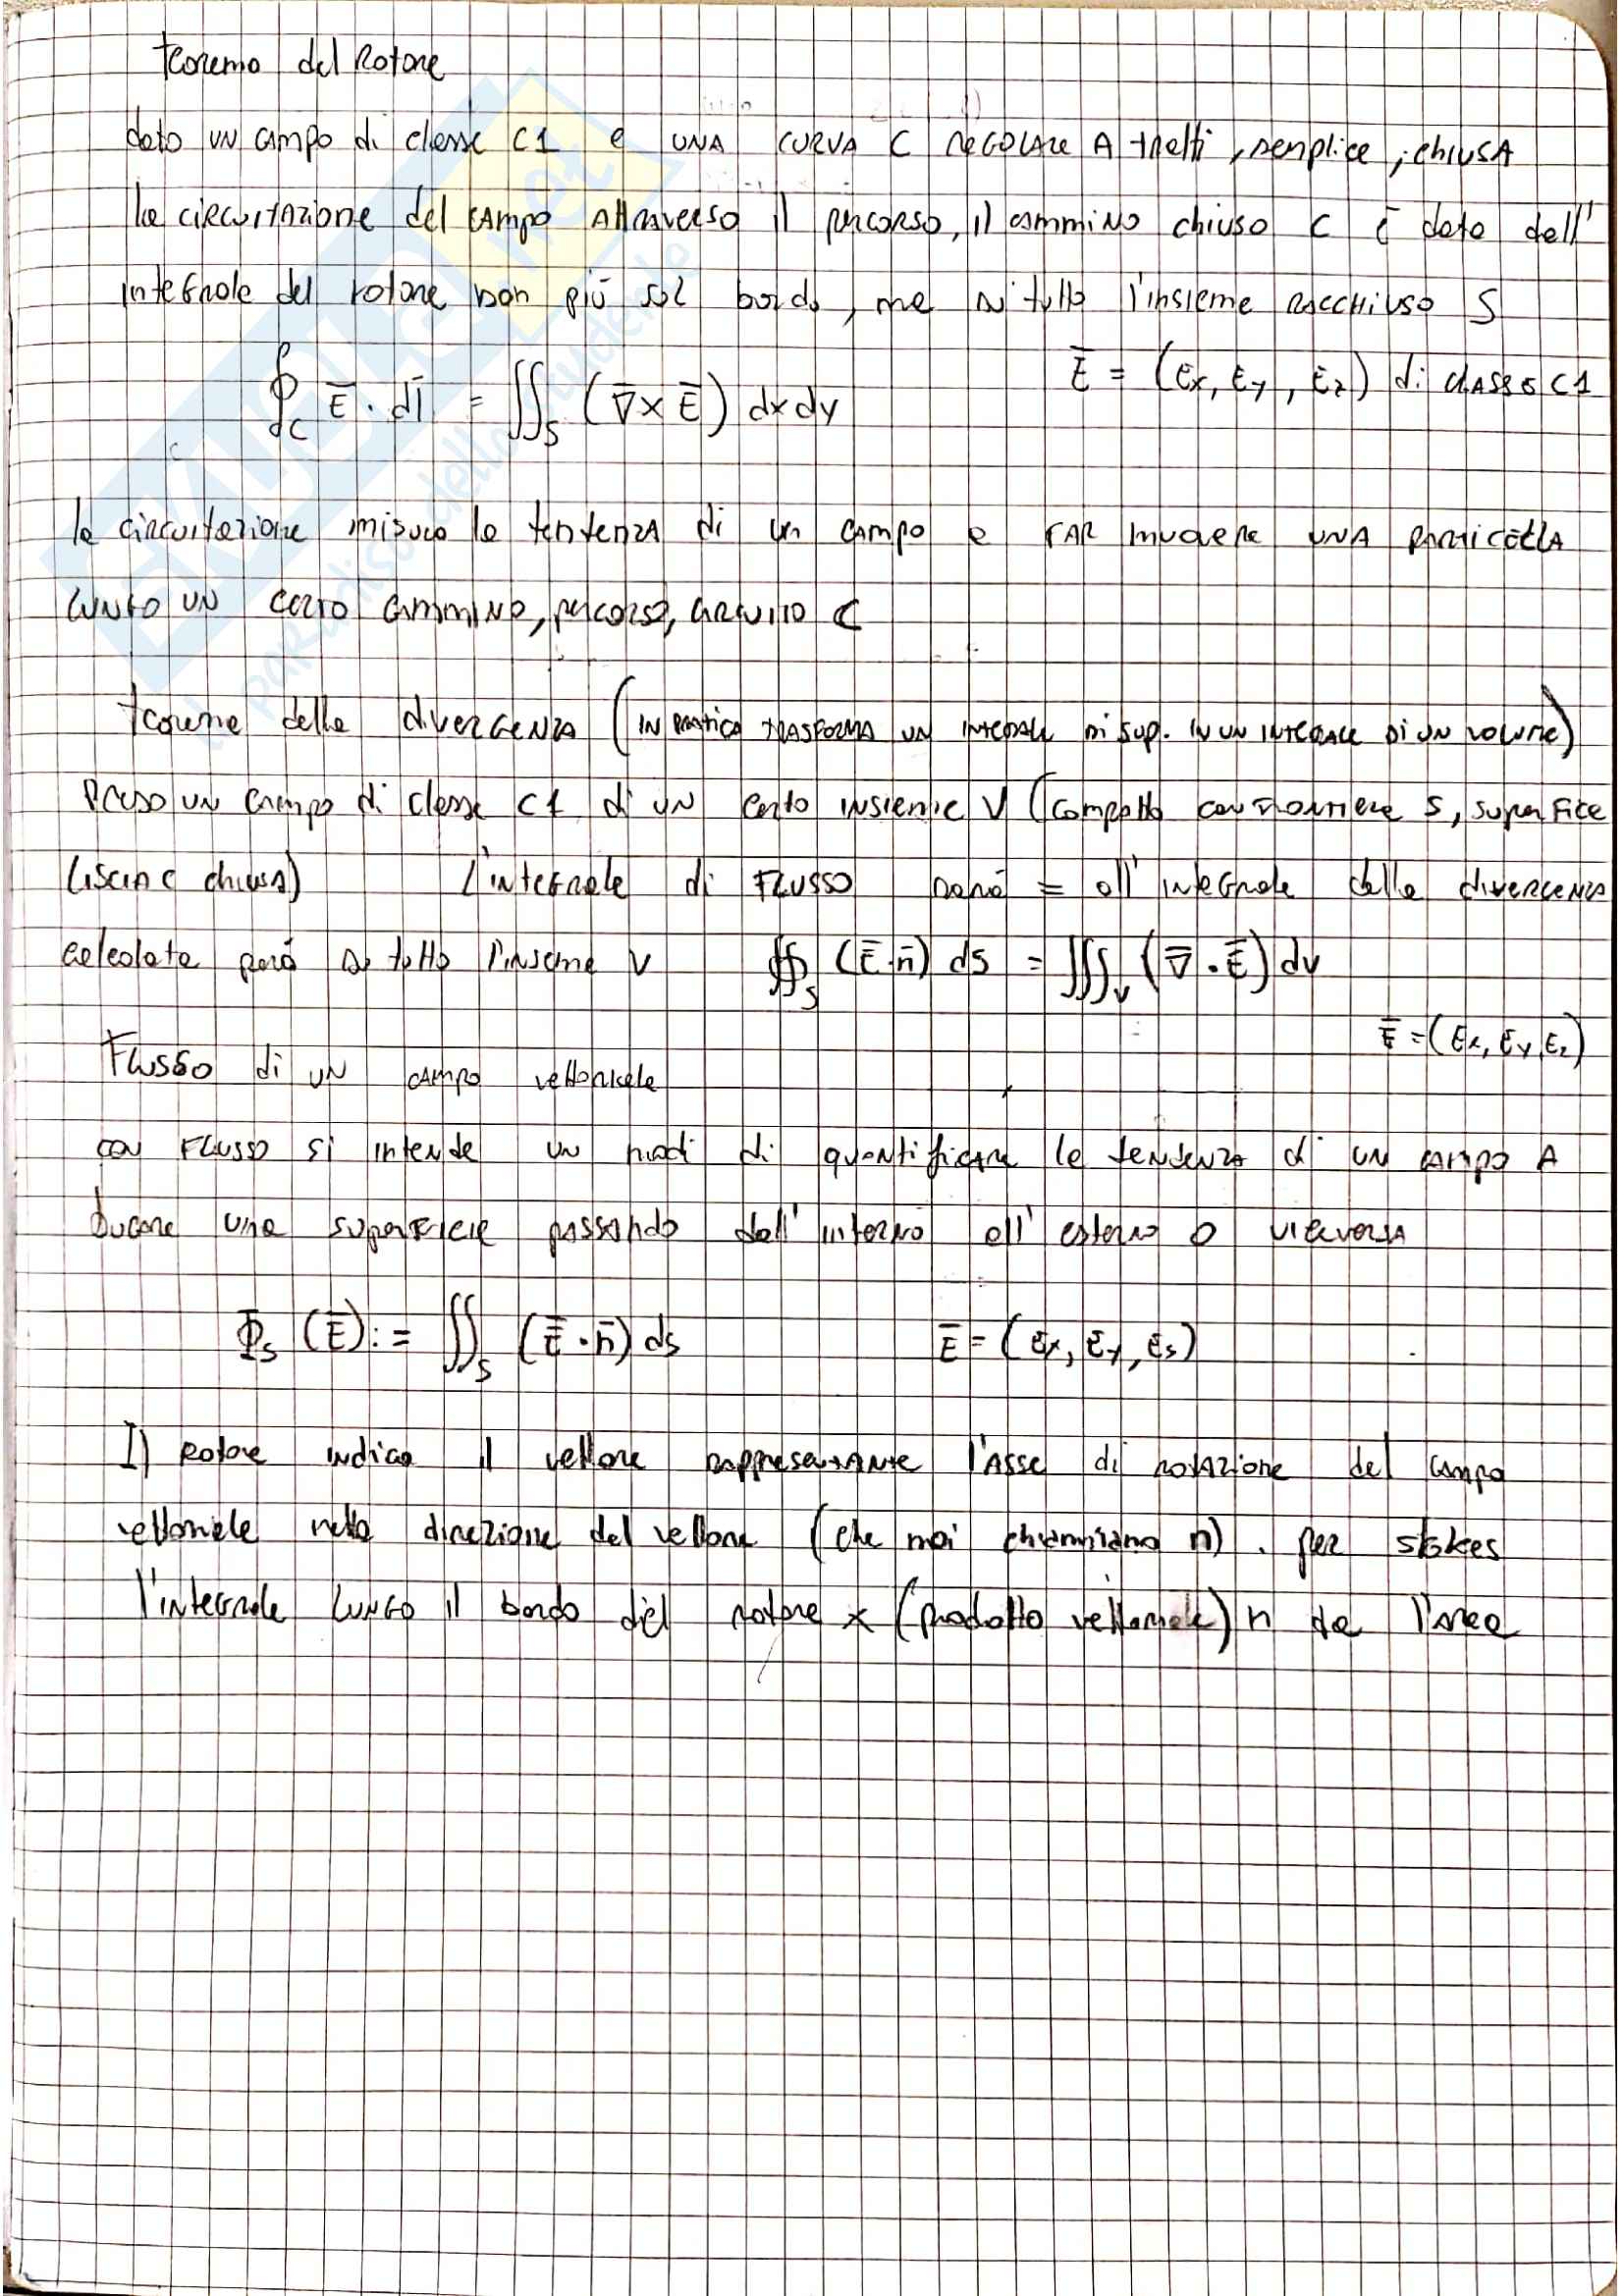 Teorema del Rotore
dato un campo di classe C1 e UNA CURVA C REGOLARE A tratti, semplice, chiusA
la circuitazione del campo Attraverso il percorso, il cammino chiuso C è data dall'
integrale del rotore non più sul bordo, ma su tutto l'insieme racchiuso S
∮_C Ē · dl̄ = ∬_S (∇̄ × Ē) dx dy Ē = (Ex, Ey, Ez) di classe C1
la circuitazione misura la tentenza di un campo a FAR muovere UNA particella
LUNGO UN certo cammino, percorso, circuito C
teorema della divergenza (IN pratica trasforma un integrale di sup. in un integrale di un volume)
Preso un campo di classe C1 di un certo insieme V (compatto con frontiera S, superfice
liscia e chiusa) l'integrale di FLUSSO sarà = all'integrale della divergenza
calcolata però su tutto l'insieme V ∯_S (Ē·n̄) ds = ∭_V (∇̄ · Ē) dv
Ē = (Ex, Ey, Ez)
Flusso di un campo vettoriale
con Flusso si intende un modi di quantificare la tendenza di un campo A
bucare una superficie passando dall'interno all'esterno o viceversa
Φ_S (Ē) := ∬_S (Ē · n̄) ds Ē = (Ex, Ey, Es)
Il rotore indica il vettore rappresentante l'asse di rotazione del campo
vettoriale nella direzione del vettore (che noi chiamiamo n). per stokes
l'integrale LUNGO il bordo del rotore × (prodotto vettoriale) n da l'area